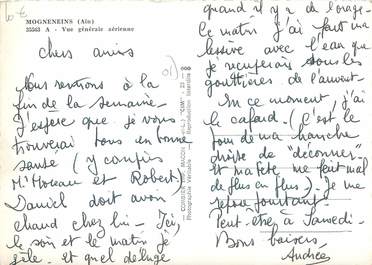 10 €
MOGNENEINS (Ain)
35563 A - Vue générale aérienne
chers amis
Nous rentrons à la
fin de la semaine.
J'espère que je vous
trouverai tous en bonne
santé (y compris
Mr Moreau et Robert)
Daniel doit avoir
chaud chez lui - Ici,
le soir et le matin je
gèle. et quel déluge
01)
COMBIER IMP. MACON
"CIM"
Photographie Véritable - Reproduction Interdite
quand il y a de l'orage.
Ce matin j'ai fait ma
lessive avec l'eau que
je recueillais sous les
gouttières de l'auvent
En ce moment, j'ai
le cafard - (C'est le
tour de ma hanche
droite de "déconner"
et ma tête me fait mal
de plus en plus) - Je me
repose pourtant -
Peut-être à Samedi -
Bons baisers
Andrée